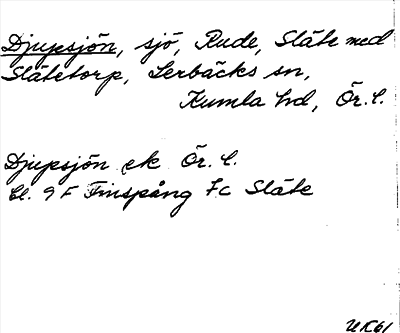 Djupsjön, sjö, Rude, Släte med
Slätetorp, Lerbäcks sn,
Kumla hd, Ör. l.
Djupsjön ek Ör. l.
bl. 9 F Finspång 7c Släte
UK61